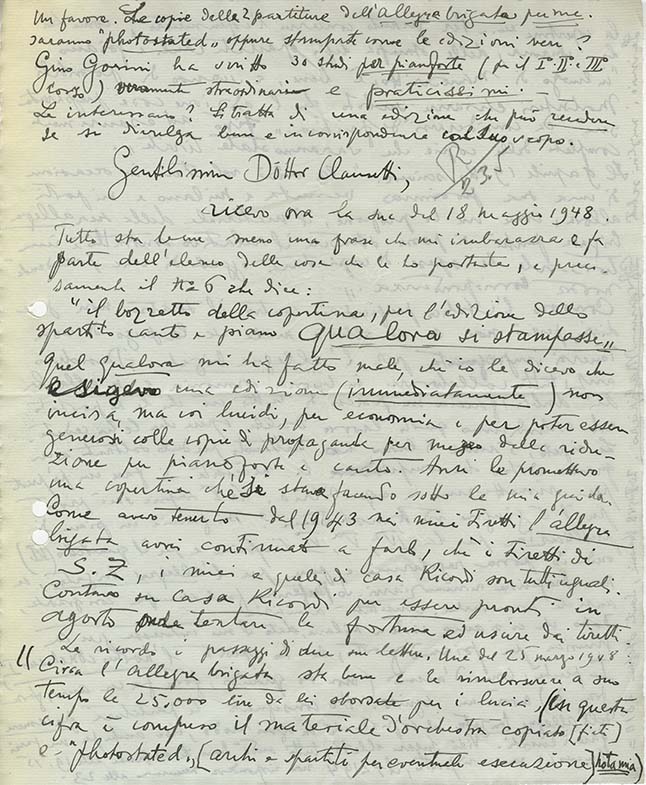 Un favore. Le copie delle 2 partiture dell'allegra brigata per me.
saranno "photostated" oppure stampate come le edizioni vere?
Gino Gorini ha scritto 30 studi per pianoforte (per il I° II° e III°
corso) veramente straordinari e praticissimi.-
Le interessano? Si tratta di una edizione che può rendere
se si divulga bene e in corrispondenza col suo scopo.
R/23.5
Gentilissimo Dottor Clausetti,
ricevo ora la sua del 18 maggio 1948.
Tutto sta bene meno una frase che mi imbarazza e fa
parte dell'elenco delle cose che le ho portate, e preci-
samente il n° 6 che dice:
"il bozzetto della copertina, per l'edizione dello
spartito canto e piano qualora si stampasse"
quel qualora mi ha fatto male, chè io le dicevo che
esigevo una edizione (immediatamente) non
incisa, ma coi lucidi, per economia e per poter essere
generosi colle copie di propaganda per mezzo della ridu-
zione per pianoforte e canto. Anzi le promettevo
una copertina che si stava facendo sotto la mia guida.
Come avevo tenuto dal 1943 nei miei tiretti l'allegra
brigata avrei continuato a farlo, chè i tiretti di
S.Z, i miei e quelli di casa Ricordi son tutti uguali.
Contavo su casa Ricordi per essere pronti in
agosto onde tentare la fortuna ed uscire dai tiretti.
Le ricordo i passaggi di due sue lettere. Una del 25 marzo 1948:
"Circa l'allegra brigata sta bene e le rimborserò a suo
tempo le 25.000 lire da lei sborsate per i lucidi, (in questa
cifra è compreso il materiale d'orchestra copiato [fiati]
e "photostated" [archi e spartiti per eventuale esecuzione] nota mia)